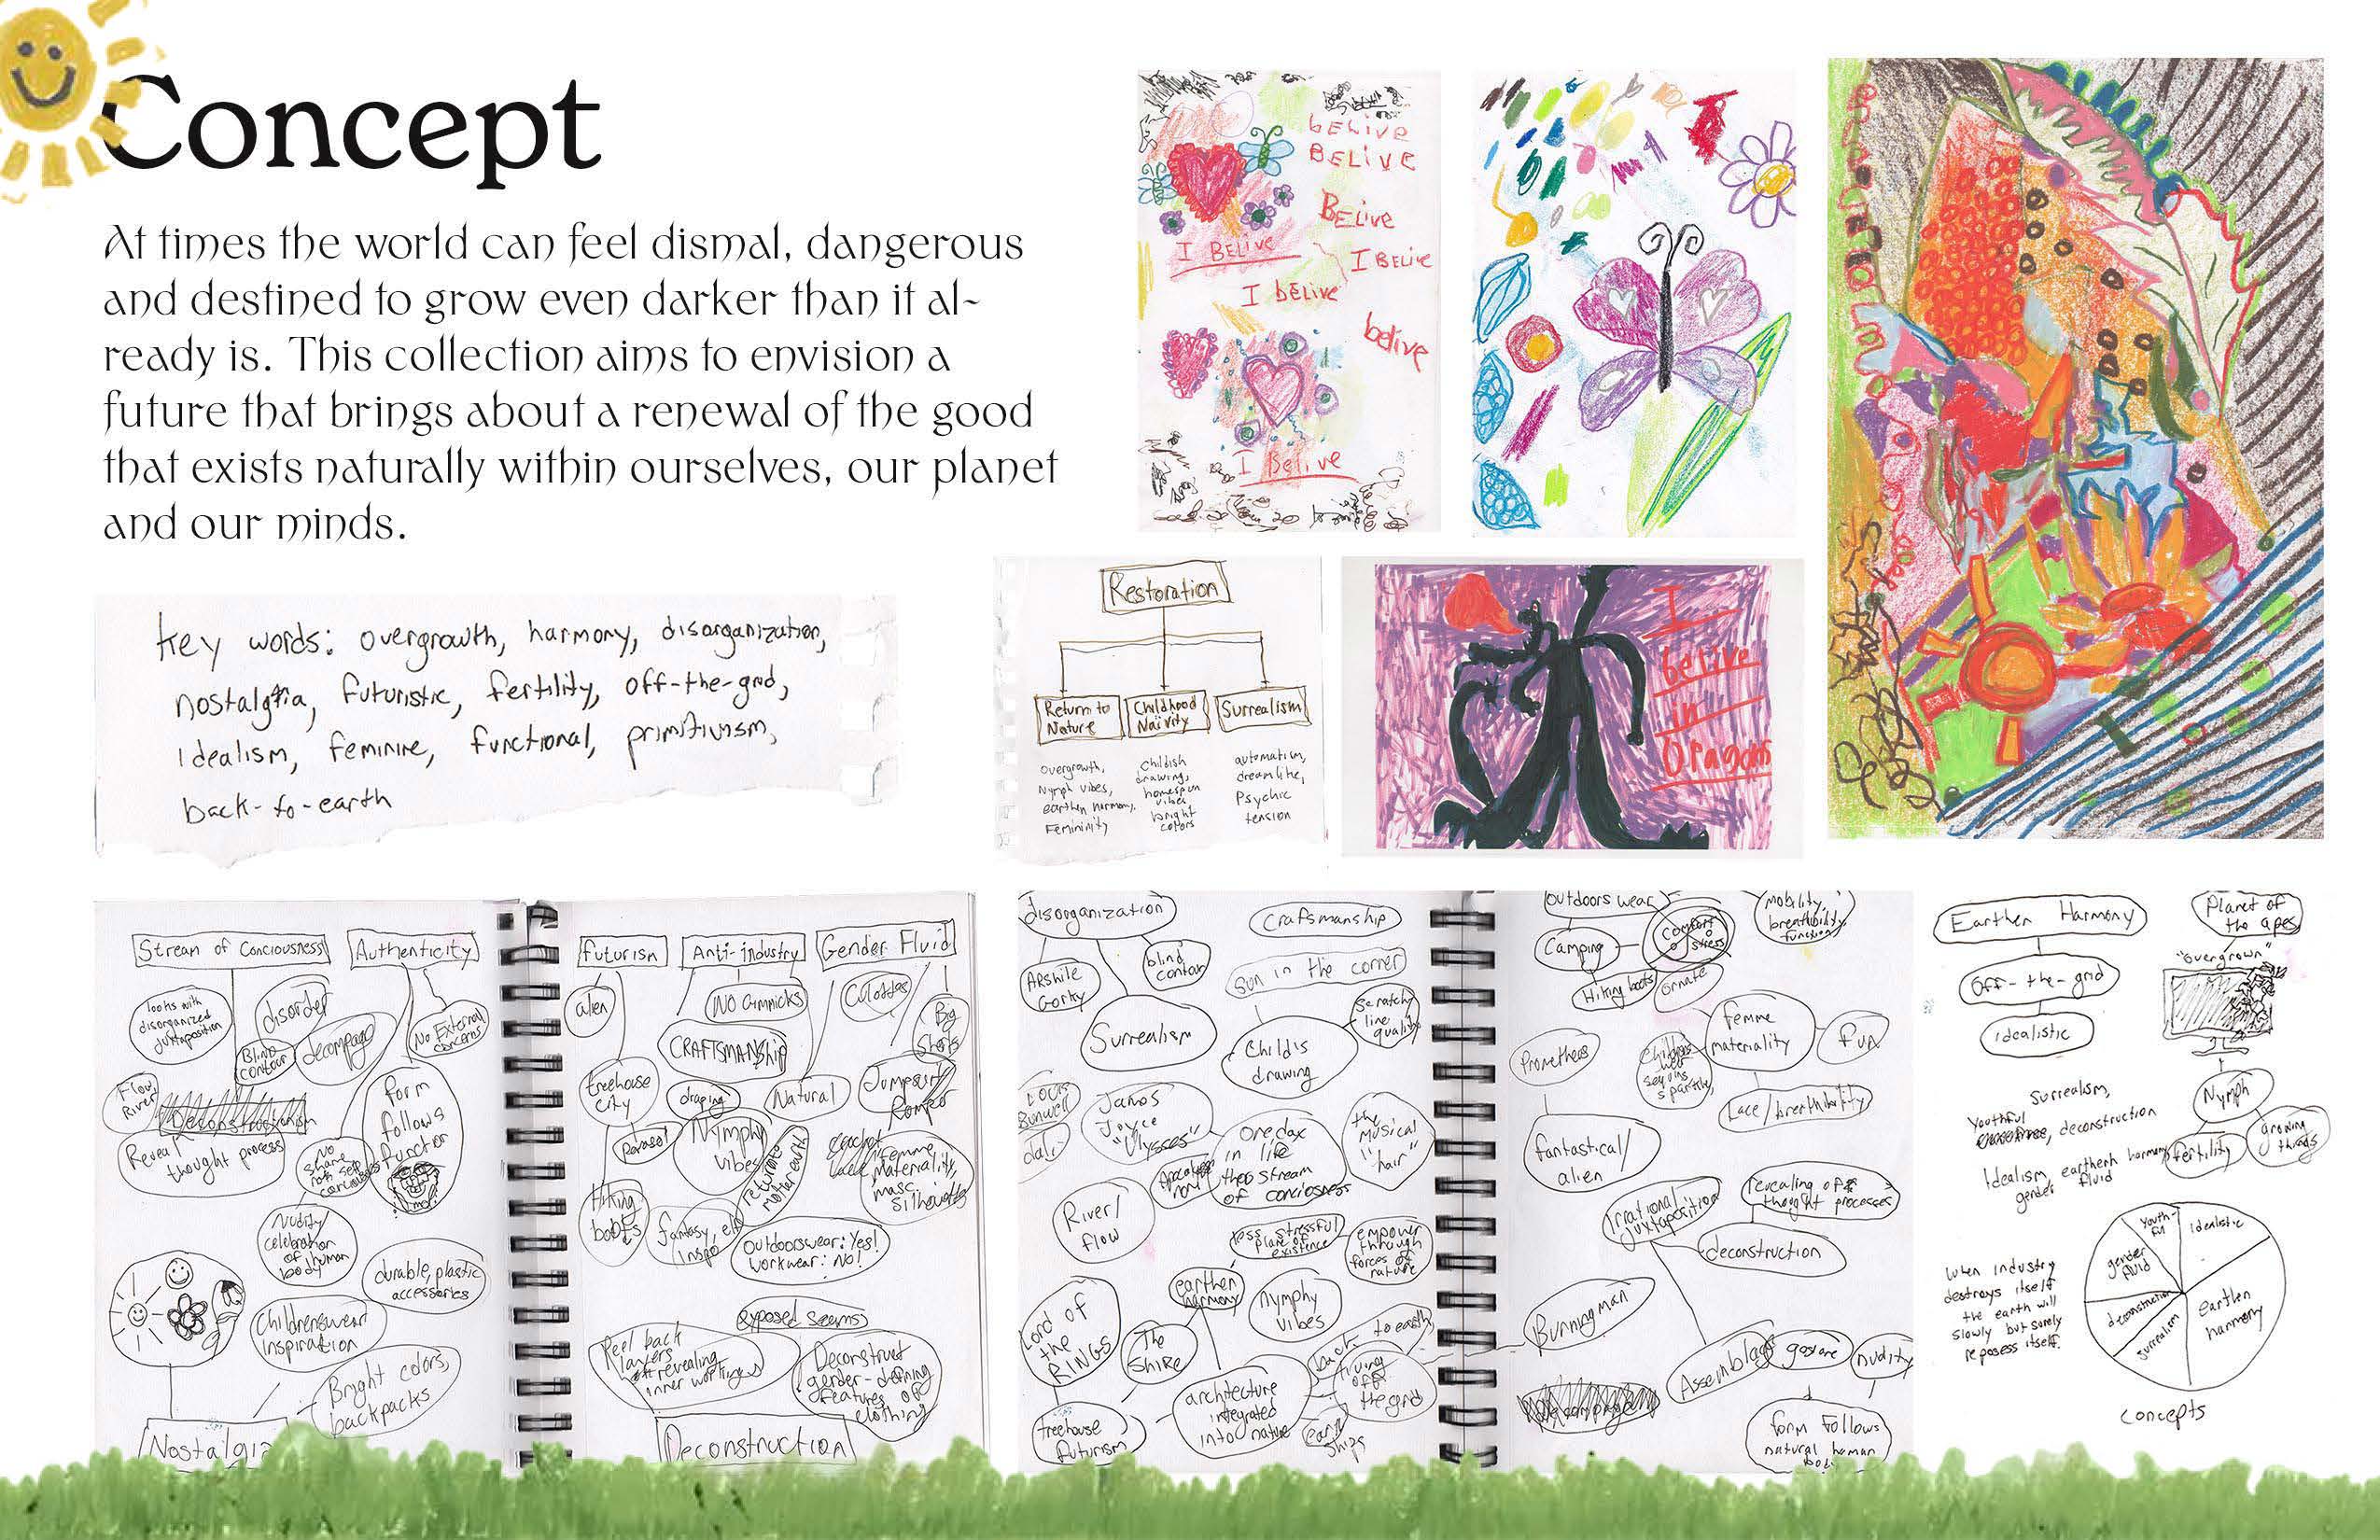 Concept
At times the world can feel dismal, dangerous
and destined to grow even darker than it al-
ready is. This collection aims to envision a
future that brings about a renewal of the good
that exists naturally within ourselves, our planet
and our minds.
key words: overgrowth, harmony, disorganization,
nostalgia, futuristic, fertility, off-the-grid,
Idealism, feminine, functional, primitivism,
back-to-earth
bELIVE
BELIVE
BELIVE
I BELIVE
I BELIVE
I bELIVE
belive
I Belive
Restoration
Return to
Nature
Childhood
Naivity
Surrealism
overgrowth,
Nymph vibes,
earthen harmony,
Femininity
Childish
drawing,
homespun
vibes
bright
colors
automatism,
dreamlike,
Psychic
tension
I
belive
in
Dragons
Stream of Conciousness
Authenticity
looks with
disorganized
juxtaposition
disorder
Blind
contour
decompage
No External
concerns
Flow,
River
Deconstructivism
Reveal
thought process
No
Shame
not self
concious
form
follows
function
Nudity/
celebration
of human
body
durable, plastic
accessories
Childrenswear
inspiration
Bright colors,
backpacks
Nostalgia
futurism
Anti-industry
Gender Fluid
alien
NO Gimmicks
Culottes
Big
Shorts
CRAFTSMANShip
treehouse
city
draping
Natural
Jumpsuit/
Romper
Parasol
Nymph
vibes
femme
materiality,
masc.
silhouettes
Hiking
boots
fantasy, elf
Inspo
Outdoorswear: Yes!
workwear: No!
exposed seams
Peel back
layers
revealing
inner workings
Deconstruct
gender-defining
features of
clothing
Deconstruction
disorganization
Crafsmanship
Arshile
Gorky
blind
contour
Sun in the corner
Surrealism
Child's
drawing
Scratchy
line
quality
Louis
Bunuell
dali
James
Joyce
"Ulysses"
One day
in life
thro stream
of conciosness
the
musical
"hair"
River/
flow
less stressful
plane of
existence
empower
through
forces of
nature
earthen
harmony
Nymph
vibes
Lord of
the
RINGS
The
Shire
back to earth
living
off
the grid
architecture
integrated
into nature
earth
ships
treehouse
futurism
Outdoors wear
Camping
Hiking boots
ornate
mobility,
breathbility,
function
Prometheus
femme
materiality
fun
Lace/breathbility
fantastical/
alien
Irrational
juxtaposition
revealing of
thought processes
deconstruction
Burning man
Assemblage
nudity
form follows
natural human
body
Earthen Harmony
Off-the-grid
idealistic
Planet of
the apes
"overgrown"
Nymph
fertility
growing
things
Surrealism,
Youthful
deconstruction
Idealism, earthen harmony
gender fluid
When industry
destroys itself
the earth will
slowly but surely
reposess itself.
Youth-
ful
idealistic
gender
fluid
deconstruction
surrealism
earthen
harmony
concepts